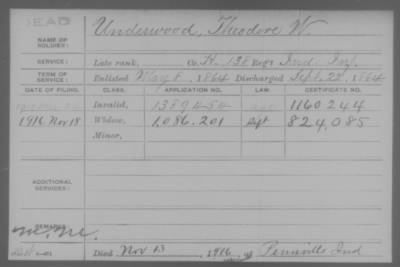 DEAD
NAME OF SOLDIER: Underwood, Theodore W.
SERVICE: Late rank, Co. K, 138 Reg't Ind. Inf.
TERM OF SERVICE: Enlisted May 5, 1864 Discharged Sept. 22, 1864
DATE OF FILING. CLASS. APPLICATION NO. LAW. CERTIFICATE NO.
Invalid, 1160244
1916 Nov 18 Widow, 1,086.201 Sept 824,085
Minor,
ADDITIONAL SERVICES:
REMARKS:
Died Nov 13, 1916, at Pennville Ind